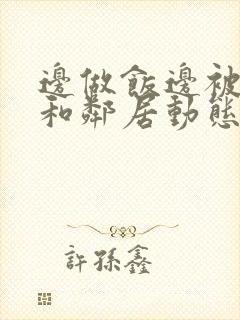 邊做飯邊被
和鄰居動態
許孫鑫